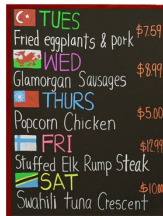 TUES
Fried eggplants & pork $7.59
WED
Glamorgan Sausages $8.99
THURS
Popcorn Chicken $5.00
FRI $12.99
Stuffed Elk Rump Steak
SAT $10.00
Swahili tuna Crescent